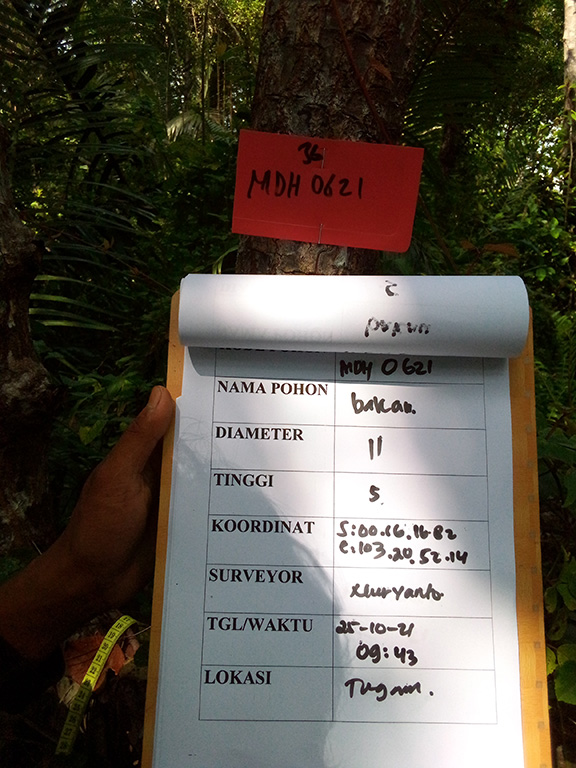 36
MDH 0621
MDH 0621
NAMA POHON bakau.
DIAMETER 11
TINGGI 5.
KOORDINAT S:00.16.16.82
e:103.20.52.14
SURVEYOR
TGL/WAKTU 25-10-21
09:43
LOKASI